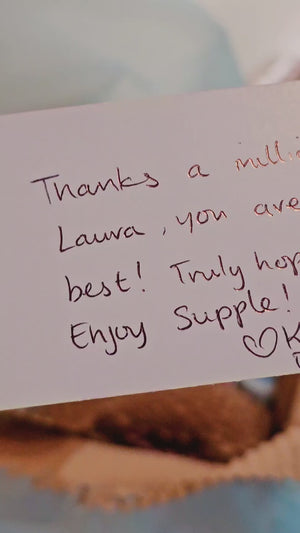 Thanks a milli
Laura, you are
best! Truly hop
Enjoy Supple!
♡K